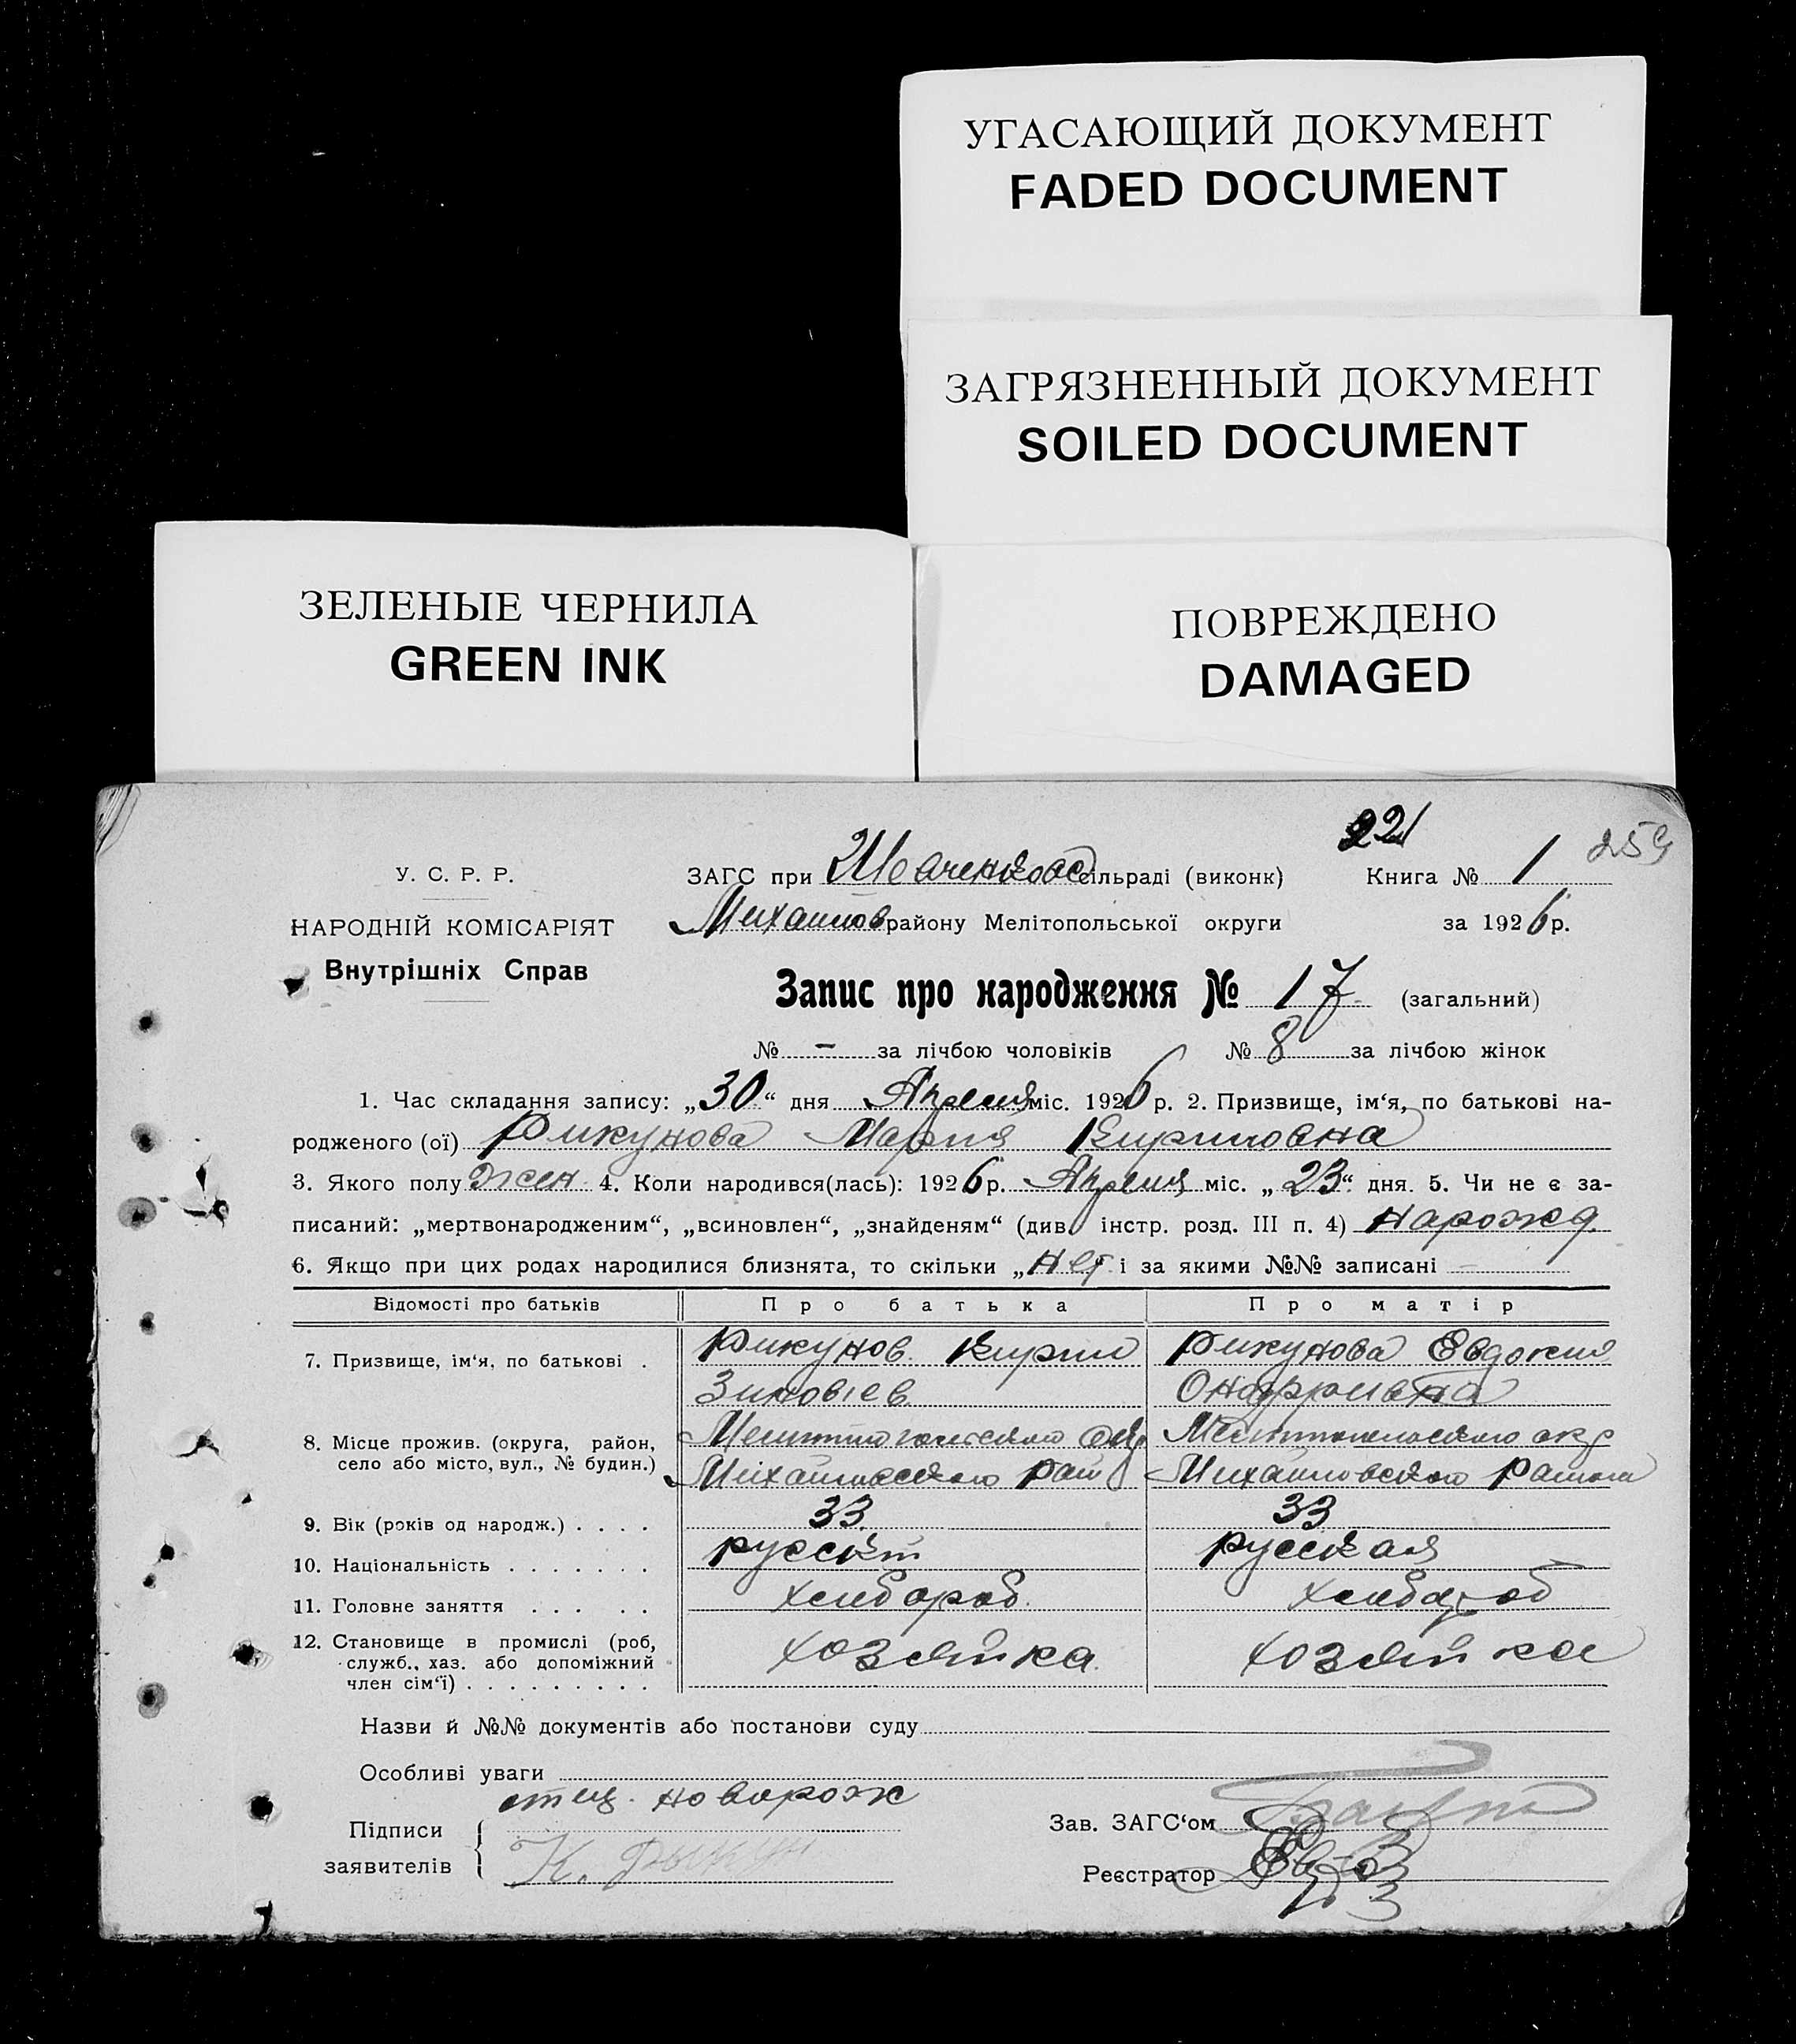 УГАСАЮЩИЙ ДОКУМЕНТ
FADED DOCUMENT
ЗАГРЯЗНЕННЫЙ ДОКУМЕНТ
SOILED DOCUMENT
ЗЕЛЕНЫЕ ЧЕРНИЛА
GREEN INK
ПОВРЕЖДЕНО
DAMAGED
221
259
У. С. Р. Р.
НАРОДНІЙ КОМІСАРІЯТ
Внутрішніх Справ
ЗАГС при сільраді (виконк) Книга № 1
Михайлов району Мелітопольської округи за 1926 р.
Запис про народження № 17 (загальний)
№ - за лічбою чоловіків № 8 за лічбою жінок
1. Час складання запису: „30“ дня Апреля міс. 1926 р. 2. Призвище, ім‘я, по батькові на-
родженого (ої) Рикунова Мария Кириловна
3. Якого полу жен 4. Коли народився(лась): 1926 р. Апреля міс. „23“ дня. 5. Чи не є за-
писаний: „мертвонародженим“, „всиновлен“, „знайденям“ (див інстр. розд. III п. 4) Нарожд.
6. Якщо при цих родах народилися близнята, то скільки „Нет і за якими №№ записані -
Відомості про батьків Про батька Про матір
7. Призвище, ім‘я, по батькові . Рикунов Кирил Рикунова Евдокия
Зиновіев Онофриевна
8. Місце прожив. (округа, район, село або місто, вул., № будин.) Мелитопольского окр Мелитопольского окр
Михайловского рай Михайловского района
9. Вік (років од народж.) . . . . 33 33
10. Національність . . . . . . . русскій русская
11. Головне заняття . . . . . хлибороб хлибороб
12. Становище в промислі (роб, служб., хаз. або допоміжний член сім‘ї) . . . . . . . . . хозяйка хозяйка
Назви й №№ документів або постанови суду
Особливі уваги
отец новорож
Підписи заявителів К. Рыкун
Зав. ЗАГС‘ом
Реєстратор